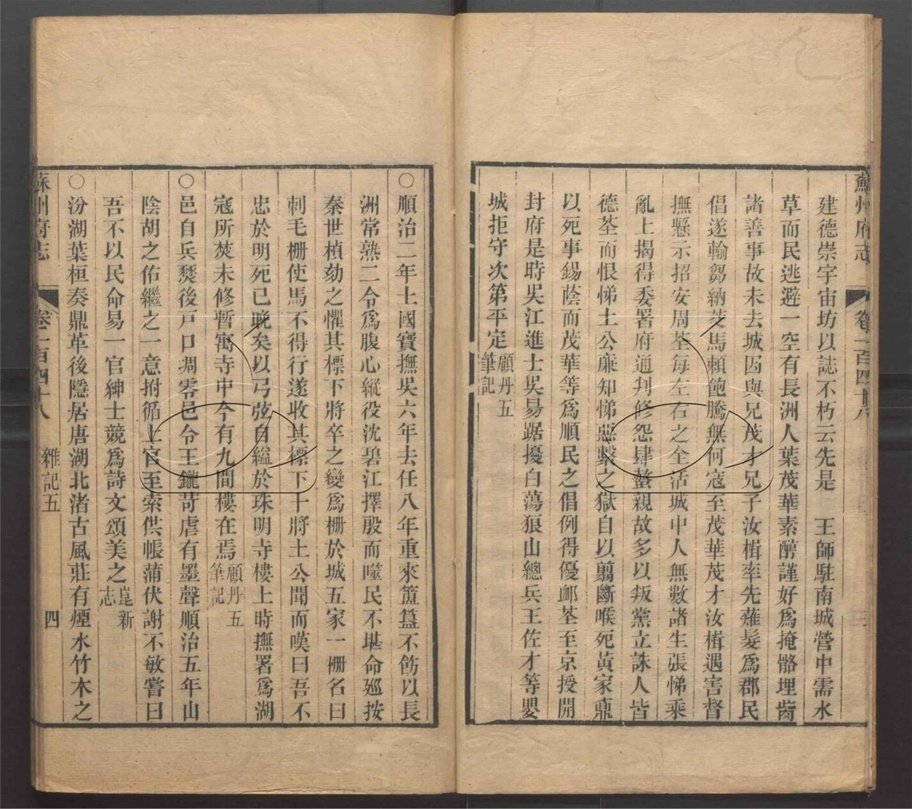 蘇州府志
卷一百四十八
建德崇宇宙坊以誌不朽云先是　王師駐南城營中需水
草而民逃避一空有長洲人葉茂華素醇謹好為掩骼埋胔
諸善事故未去城因與兄茂才兄子汝楫率先薙髮為郡民
倡遂輸芻納茭馬賴飽騰無何寇至茂華茂才汝楫遇害督
撫懸示招安周荃每左右之全活城中人無數諸生張悌乘
亂上揭得委署府通判修怨肆螫親故多以叛黨立誅人皆
德荃而恨悌土公廉知悌惡繫之獄自以翦斷喉死黃家鼒
以死事錫蔭而茂華等為順民之倡例得優䘏荃至京授開
封府是時吳江進士吳易踞擾白蕩狼山總兵王佐才等嬰
城拒守次第平定顧丹五筆記
〇順治二年土國寶撫吳六年去任八年重來簠簋不飭以長
洲常熟二令為腹心縱役沈碧江擇殷而噬民不堪命廵按
秦世楨劾之懼其標下將卒之變為栅於城五家一栅名曰
刺毛栅使馬不得行遂收其標下十將土公聞而嘆曰吾不
忠於明死已晚矣以弓弦自縊於珠明寺樓上時撫署為湖
寇所焚未修暫寓寺中今有九間樓在焉顧丹五筆記
〇邑自兵燹後戸口凋零邑令王鑨苛虐有墨聲順治五年山
陰胡之佑繼之一意拊循上官至索供帳蒲伏謝不敏嘗曰
吾不以民命易一官紳士競為詩文頌美之崑新志
〇汾湖葉桓奏鼎革後隱居唐湖北渚古風莊有煙水竹木之
蘇州府志
卷一百四十八
雜記五
四